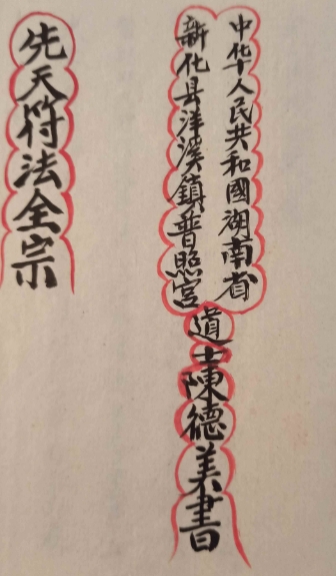 中华人民共和國湖南省
新化县洋溪鎮普照宮
道士陳德美書
先天符法全宗